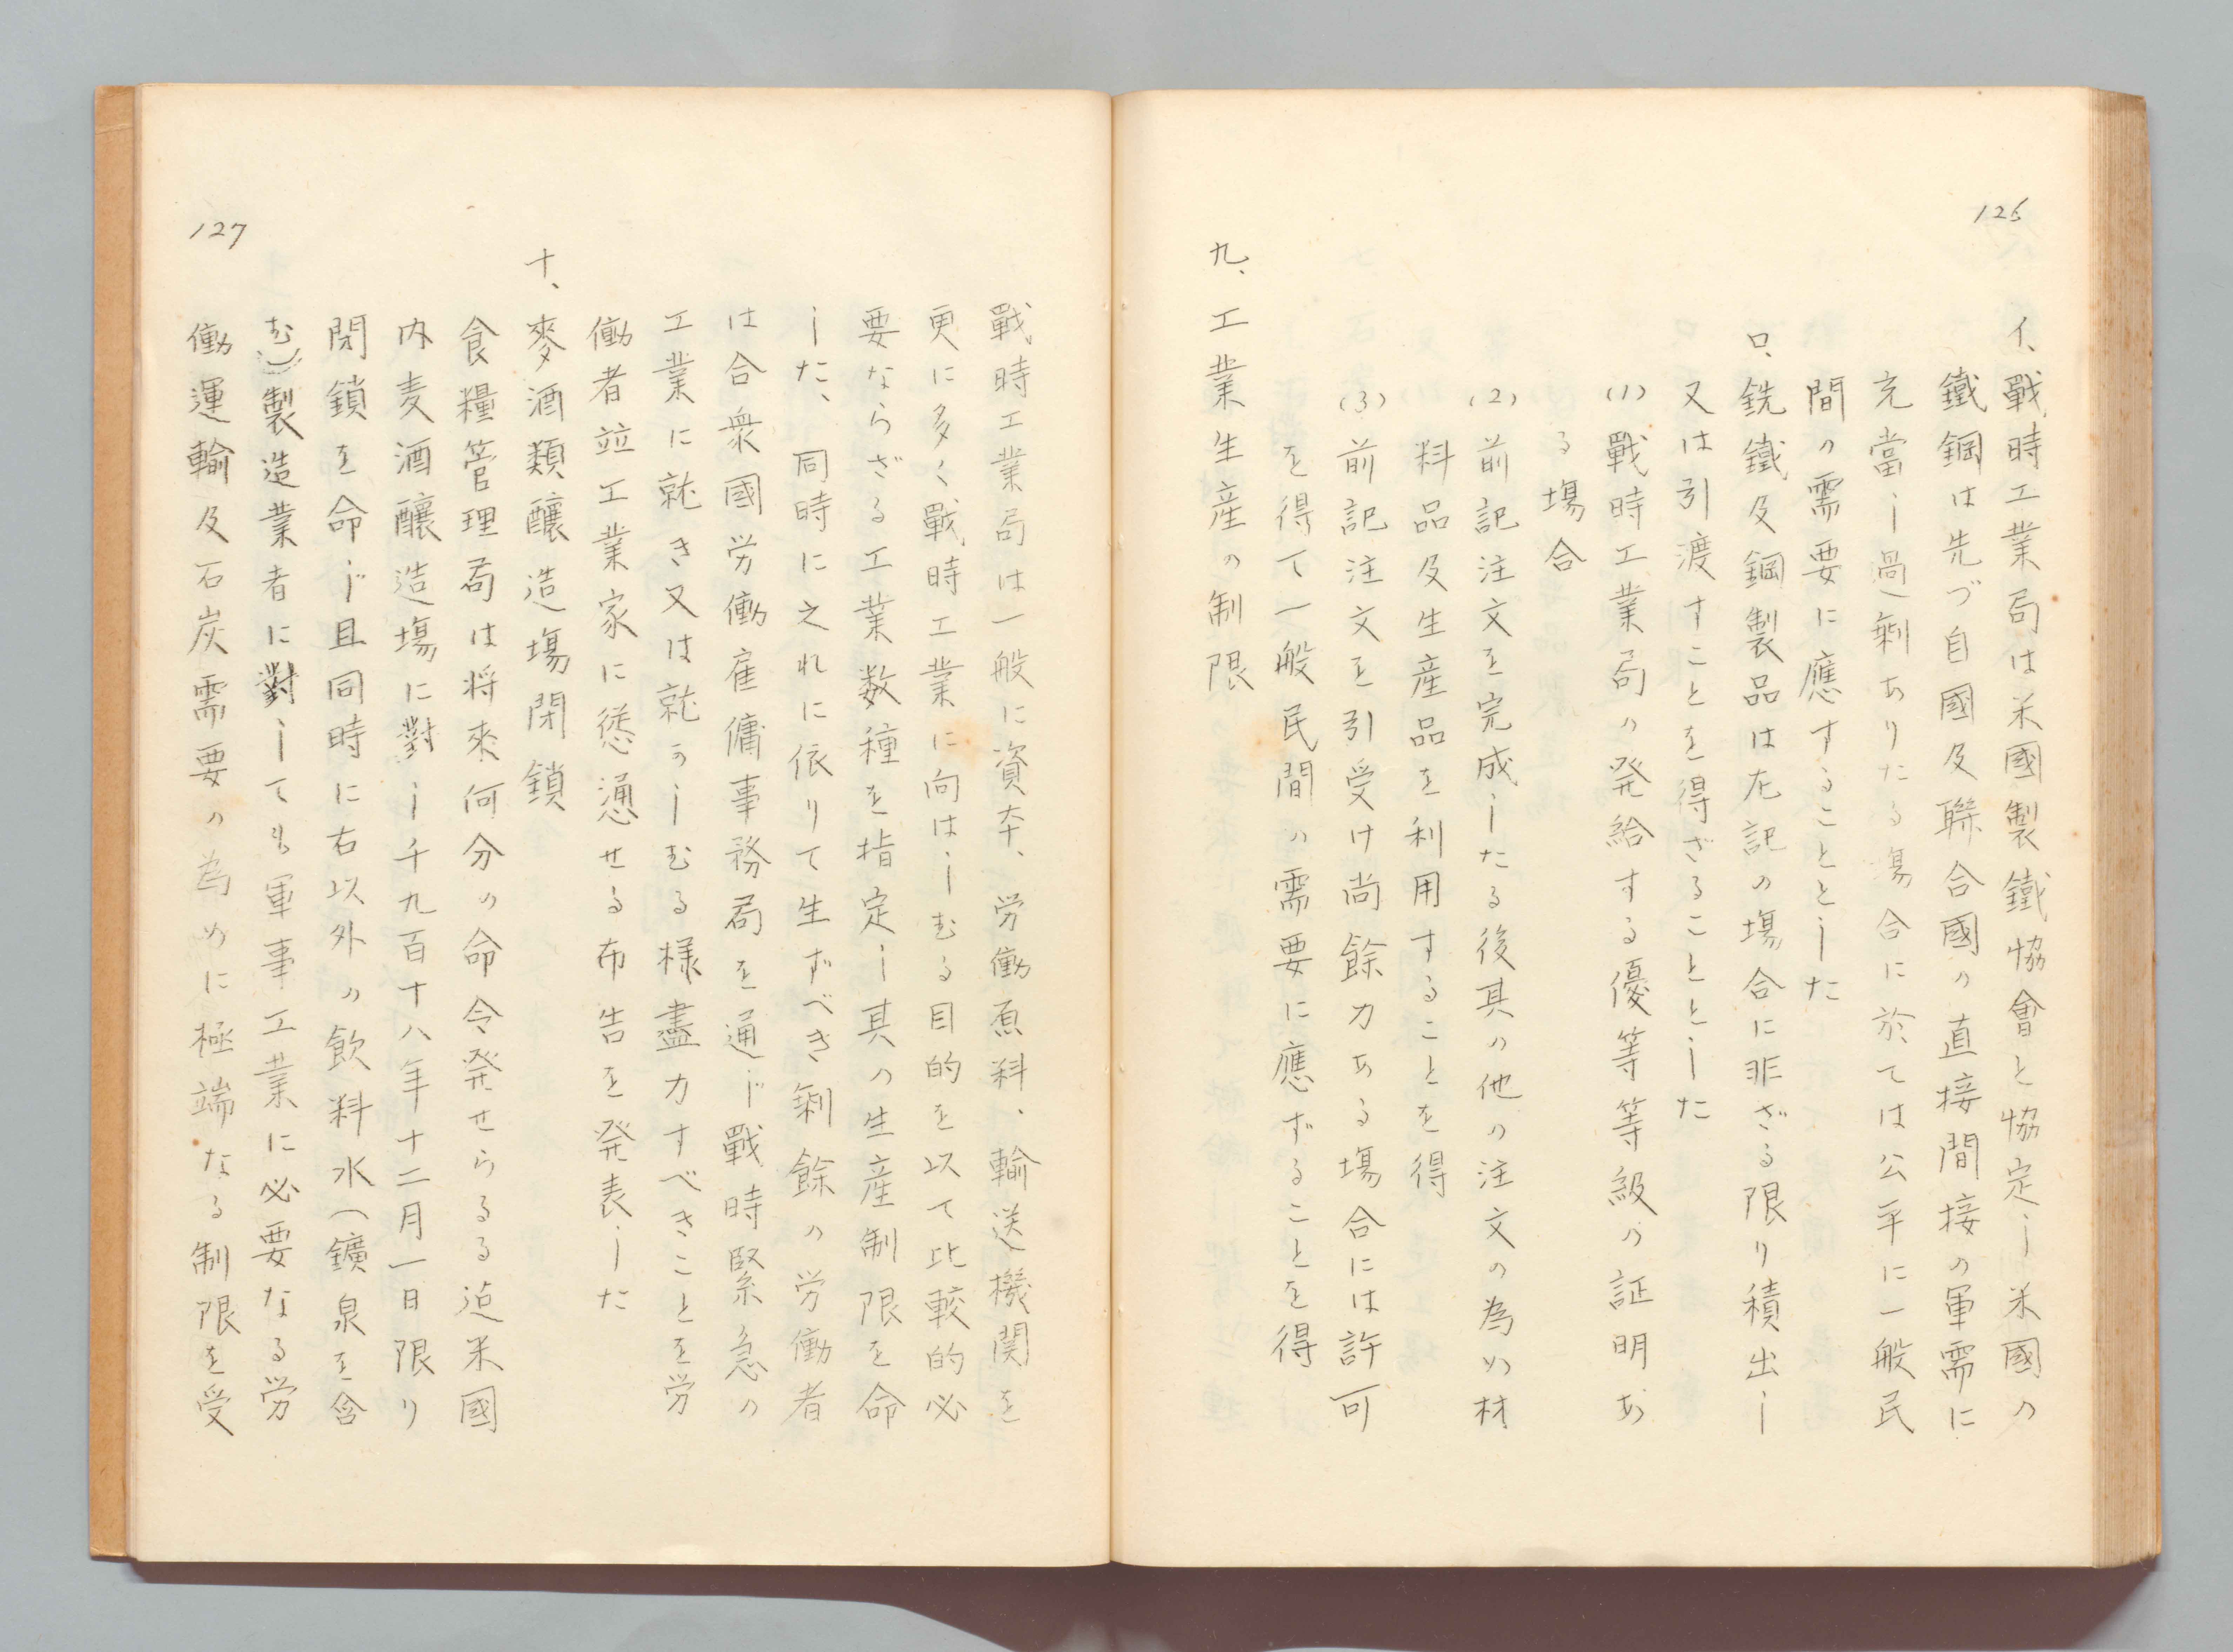 126
イ、戰時工業局は米國製鐵協會と協定し米國の
鐵鋼は先づ自國及聯合國の直接間接の軍需に
充當し過剰ありたる場合に於ては公平に一般民
間の需要に應することとした
ロ、銑鐵及鋼製品は左記の場合に非ざる限り積出し
又は引渡すことを得ざることとした
(1)戰時工業局の発給する優等等級の証明あ
る場合
(2)前記注文を完成したる後其の他の注文の為め材
料品及生産品を利用することを得
(3)前記注文を引受け尚餘力ある場合には許可
を得て一般民間の需要に應ずることを得
九、工業生産の制限
戰時工業局は一般に資本、労働原料、輸送機関を
更に多く戰時工業に向はしむる目的を以て比較的必
要ならざる工業数種を指定し其の生産制限を命
した、同時に之れに依りて生ずべき剰餘の労働者
は合衆國労働雇傭事務局を通じ戰時緊急の
工業に就き又は就かしむる様盡力すべきことを労
働者竝工業家に慫慂せる布告を発表した
十、麥酒類釀造場閉鎖
食糧管理局は将來何分の命令発せらるる迠米國
内麦酒釀造場に對し千九百十八年十二月一日限り
閉鎖を命じ且同時に右以外の飲料水(鑛泉を含
む)製造業者に對しても軍事工業に必要なる労
働運輸及石炭需要の為めに極端なる制限を受
127